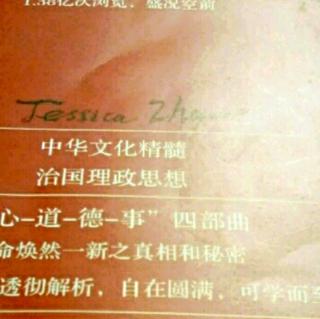 1.38亿次浏览，盛况空前
Jessica
中华文化精髓
治国理政思想
心–道–德–事”四部曲
命焕然一新之真相和秘密
透彻解析，自在圆满，可学而至